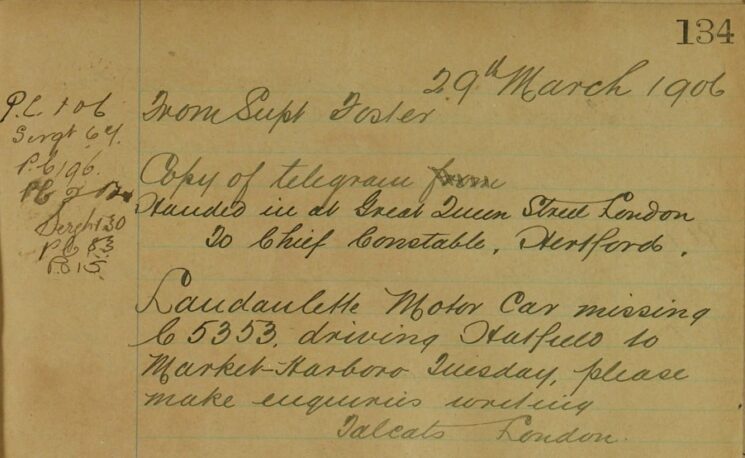 134
29th March 1906
From Supt Foster
Copy of telegram from
Handed in at Great Queen Street London
To Chief Constable, Hertford.
Landaulette Motor Car missing
C 5353, driving Hatfield to
Market-Harboro Tuesday, please
make enquiries writing
Talcats London.
P.C. 106
Sergt 64.
P.C 196.
PC
Sergt 30
P.C 83
P.C 15.